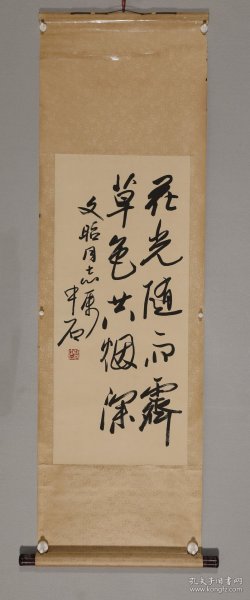 花光随雨霽
草色共烟深
文昭同志属
中石
孔夫子旧书网